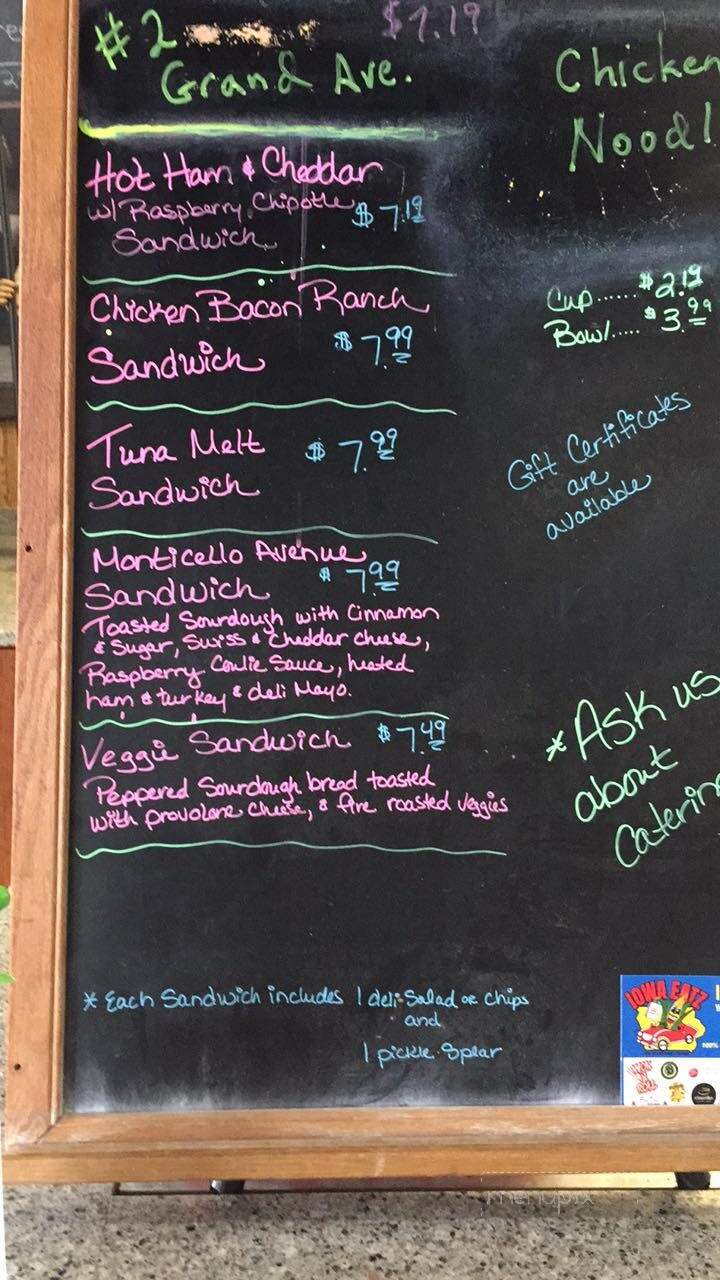 #2 $7.19
Grand Ave.
Hot Ham & Cheddar
w/ Raspberry Chipotle $7.19
Sandwich
Chicken Bacon Ranch
Sandwich $7.99
Tuna Melt $7.99
Sandwich
Monticello Avenue
Sandwich $7.99
Toasted Sourdough with Cinnamon
& Sugar, Swiss & Cheddar cheese,
Raspberry Coulie Sauce, heated
ham & turkey & deli Mayo.
Veggie Sandwich $7.49
Peppered Sourdough bread toasted
with provolone cheese, & fire roasted veggies
* Each Sandwich includes 1 deli-Salad or Chips
and
1 pickle Spear
Chicken
Noodl
Cup ...... $2.19
Bowl..... $3.99
Gift Certificates
are
available
* Ask us
about
Caterin
IOWA EATZ
100%
menupix